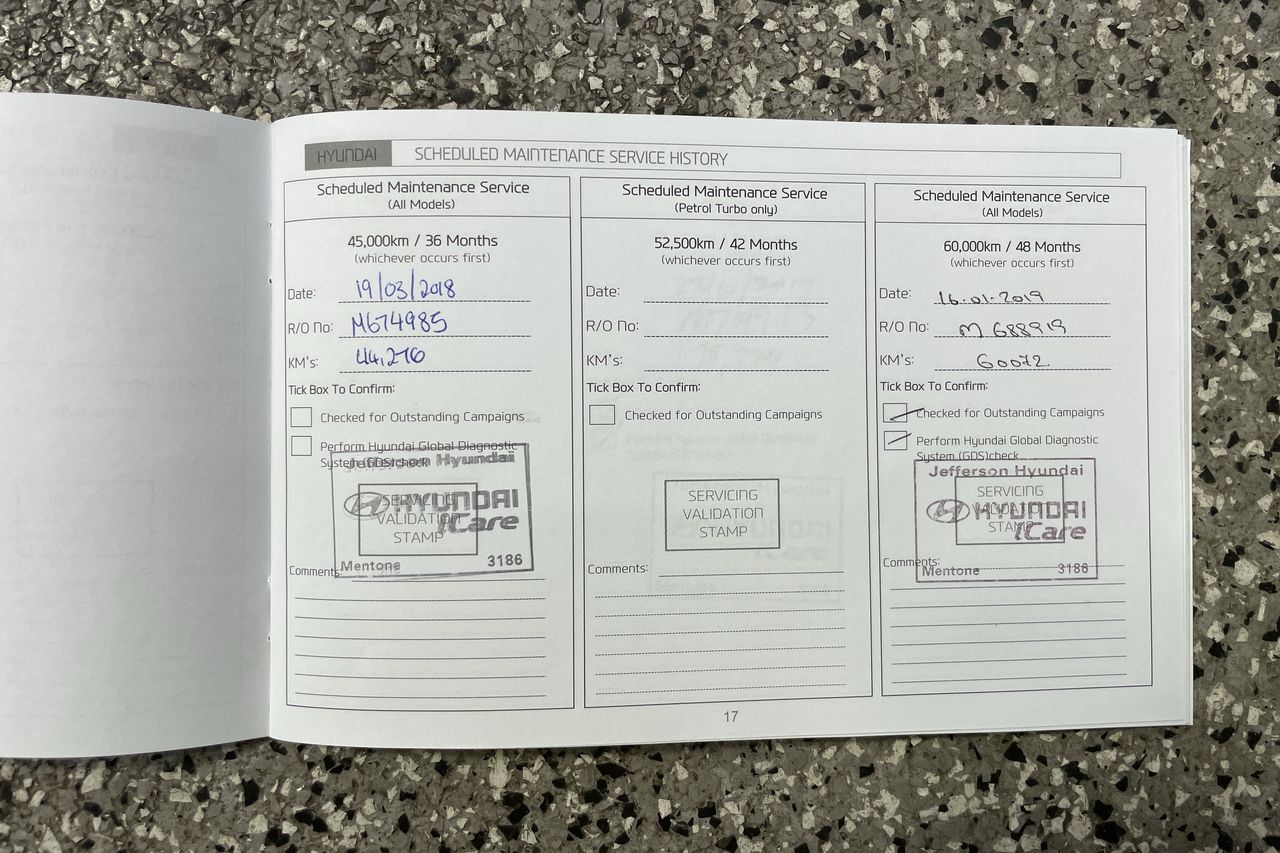 HYUNDAI SCHEDULED MAINTENANCE SERVICE HISTORY
Scheduled Maintenance Service
(All Models)
45,000km / 36 Months
(whichever occurs first)
Date: 19/03/2018
R/O No: M674985
KM's: 44,276
Tick Box To Confirm:
Checked for Outstanding Campaigns
Perform Hyundai Global Diagnostic
System (GDS)check
Jefferson Hyundai
SERVICING
VALIDATION
STAMP
HYUNDAI
iCare
Mentone 3186
Comments:
Scheduled Maintenance Service
(Petrol Turbo only)
52,500km / 42 Months
(whichever occurs first)
Date:
R/O No:
KM's:
Tick Box To Confirm:
Checked for Outstanding Campaigns
SERVICING
VALIDATION
STAMP
Comments:
Scheduled Maintenance Service
(All Models)
60,000km / 48 Months
(whichever occurs first)
Date: 16.01.2019
R/O No: M 688919
KM's: 60072
Tick Box To Confirm:
Checked for Outstanding Campaigns
Perform Hyundai Global Diagnostic
System (GDS)check
Jefferson Hyundai
SERVICING
VALIDATION
STAMP
HYUNDAI
iCare
Mentone 3186
Comments:
17